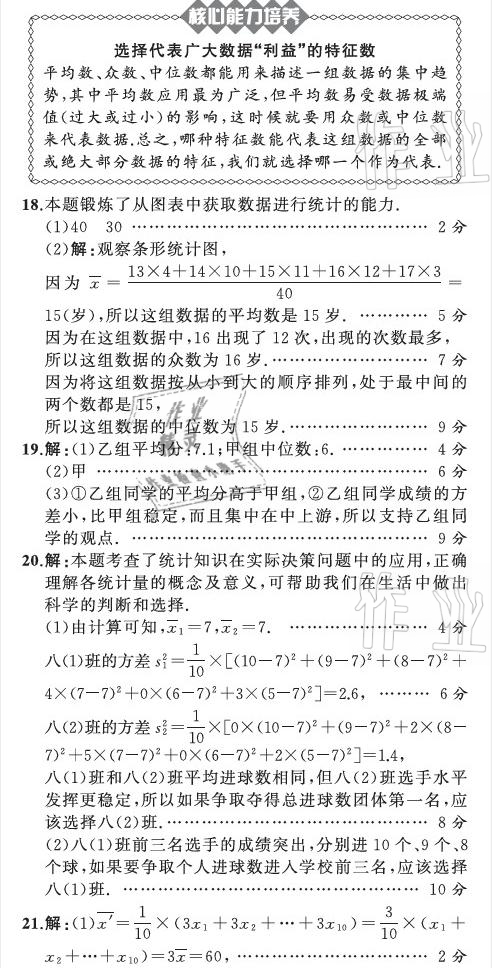 核心能力培养
选择代表广大数据“利益”的特征数
平均数、众数、中位数都能用来描述一组数据的集中趋
势,其中平均数应用最为广泛,但平均数易受数据极端
值(过大或过小)的影响,这时候就要用众数或中位数
来代表数据.总之,哪种特征数能代表这组数据的全部
或绝大部分数据的特征,我们就选择哪一个作为代表.
18.本题锻炼了从图表中获取数据进行统计的能力.
(1)40 30 ………………………………………… 2 分
(2)解:观察条形统计图,
因为 x̄ = (13×4+14×10+15×11+16×12+17×3)/40 =
15(岁),所以这组数据的平均数是 15 岁. ………… 5 分
因为在这组数据中,16 出现了 12 次,出现的次数最多,
所以这组数据的众数为 16 岁.…………………… 7 分
因为将这组数据按从小到大的顺序排列,处于最中间的
两个数都是 15,
所以这组数据的中位数为 15 岁.………………… 9 分
19.解:(1)乙组平均分:7.1;甲组中位数:6. ………… 4 分
(2)甲 …………………………………………… 6 分
(3)①乙组同学的平均分高于甲组,②乙组同学成绩的方
差小,比甲组稳定,而且集中在中上游,所以支持乙组同
学的观点. ……………………………………… 9 分
20.解:本题考查了统计知识在实际决策问题中的应用,正确
理解各统计量的概念及意义,可帮助我们在生活中做出
科学的判断和选择.
(1)由计算可知,x̄₁=7,x̄₂=7. ………………… 4 分
八(1)班的方差 s₁²=1/10×[(10-7)²+(9-7)²+(8-7)²+
4×(7-7)²+0×(6-7)²+3×(5-7)²]=2.6, ……… 6 分
八(2)班的方差 s₂²=1/10×[0×(10-7)²+(9-7)²+2×(8-
7)²+5×(7-7)²+0×(6-7)²+2×(5-7)²]=1.4,
八(1)班和八(2)班平均进球数相同,但八(2)班选手水平
发挥更稳定,所以如果争取夺得总进球数团体第一名,应
该选择八(2)班.………………………………… 8 分
(2)八(1)班前三名选手的成绩突出,分别进 10 个、9 个、8
个球,如果要争取个人进球数进入学校前三名,应该选择
八(1)班. ……………………………………… 10 分
21.解:(1)x̄′=1/10×(3x₁+3x₂+…+3x₁₀)=3/10×(x₁+
x₂+…+x₁₀)=3x̄=60, ……………………… 2 分
作业
作业